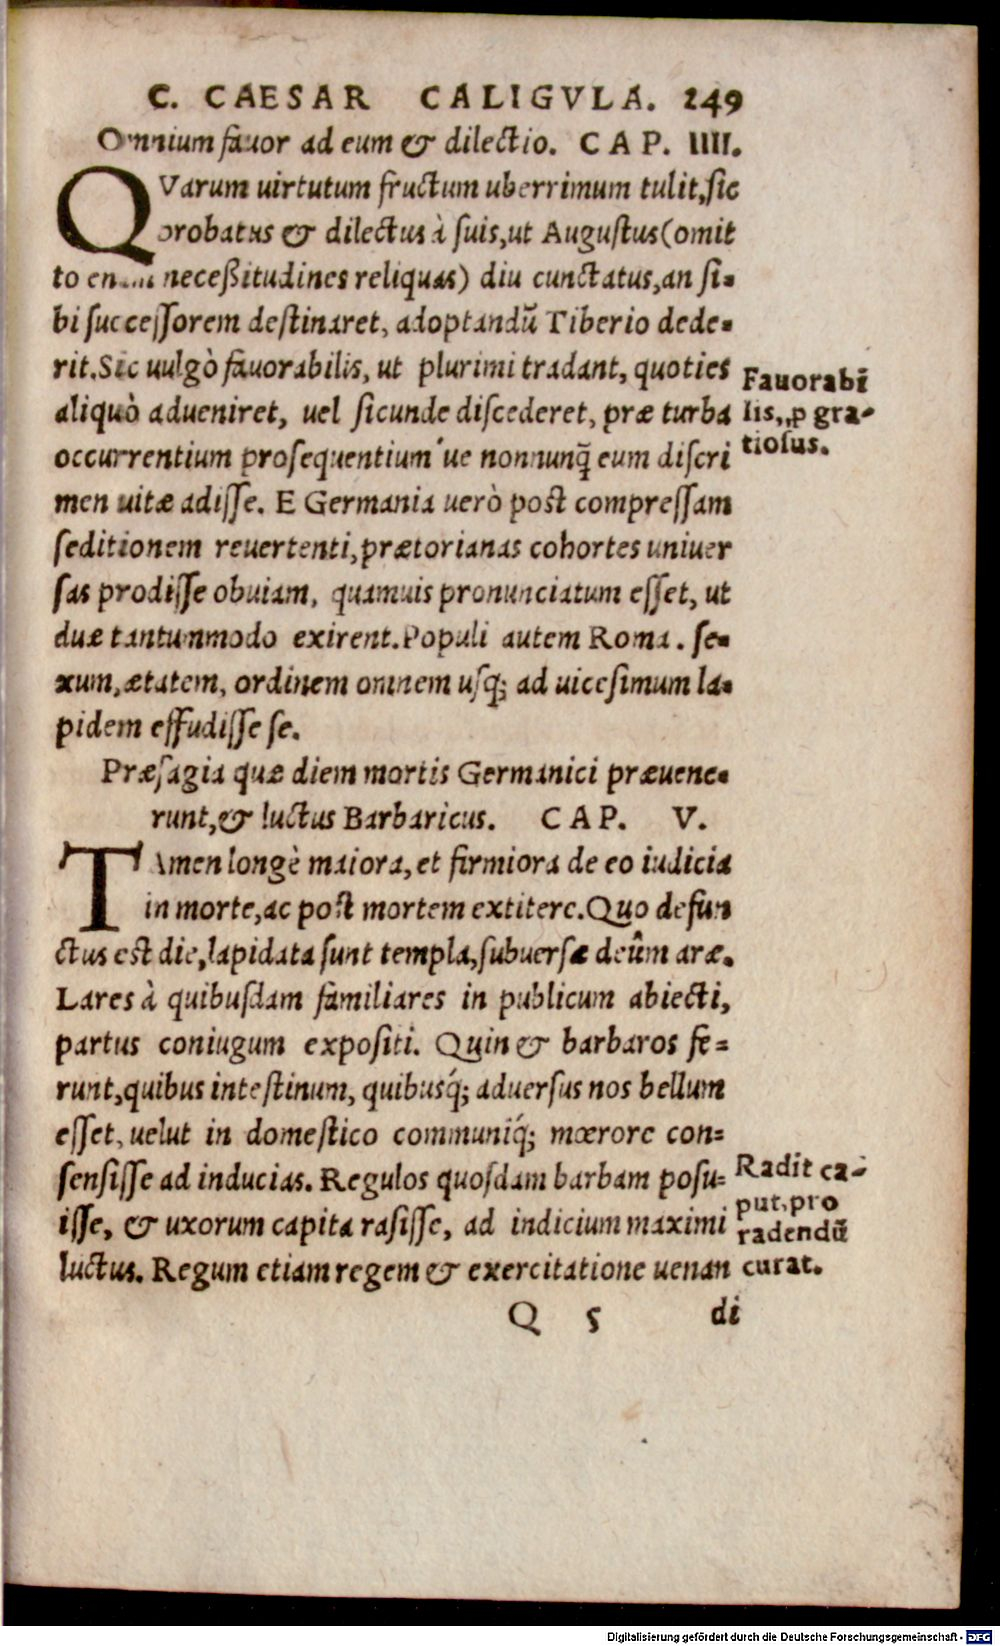 C. CAESAR CALIGVLA. 249
Omnium fauor ad eum & dilectio. CAP. IIII.
QVarum uirtutum fructum uberrimum tulit, sic
probatus & dilectus à suis, ut Augustus (omit
to enim neceßitudines reliquas) diu cunctatus, an si-
bi successorem destinaret, adoptandũ Tiberio dede-
rit. Sic uulgò fauorabilis, ut plurimi tradant, quoties
aliquò adueniret, uel sicunde discederet, præ turba
occurrentium prosequentium'ue nonnunq̃ eum discri
men uitæ adisse. E Germania uerò post compressam
seditionem reuertenti, prætorianas cohortes uniuer
sas prodisse obuiam, quamuis pronunciatum esset, ut
duæ tantummodo exirent. Populi autem Roma. se-
xum, ætatem, ordinem omnem usq; ad uicesimum la-
pidem effudisse se.
Fauorabi
lis, ꝓ gra-
tiosus.
Præsagia quæ diem mortis Germanici præuene-
runt, & luctus Barbaricus. CAP. V.
TAmen longè maiora, et firmiora de eo iudicia
in morte, ac post mortem extitere. Quo defun
ctus est die, lapidata sunt templa, subuersæ deûm aræ.
Lares à quibusdam familiares in publicum abiecti,
partus coniugum expositi. Quin & barbaros fe-
runt, quibus intestinum, quibusq́; aduersus nos bellum
esset, uelut in domestico communiq́; mœrore con-
sensisse ad inducias. Regulos quosdam barbam posu-
isse, & uxorum capita rasisse, ad indicium maximi
luctus. Regum etiam regem & exercitatione uenan
Radit ca-
put, pro
radendũ
curat.
Q 5 di
Digitalisierung gefördert durch die Deutsche Forschungsgemeinschaft - DFG